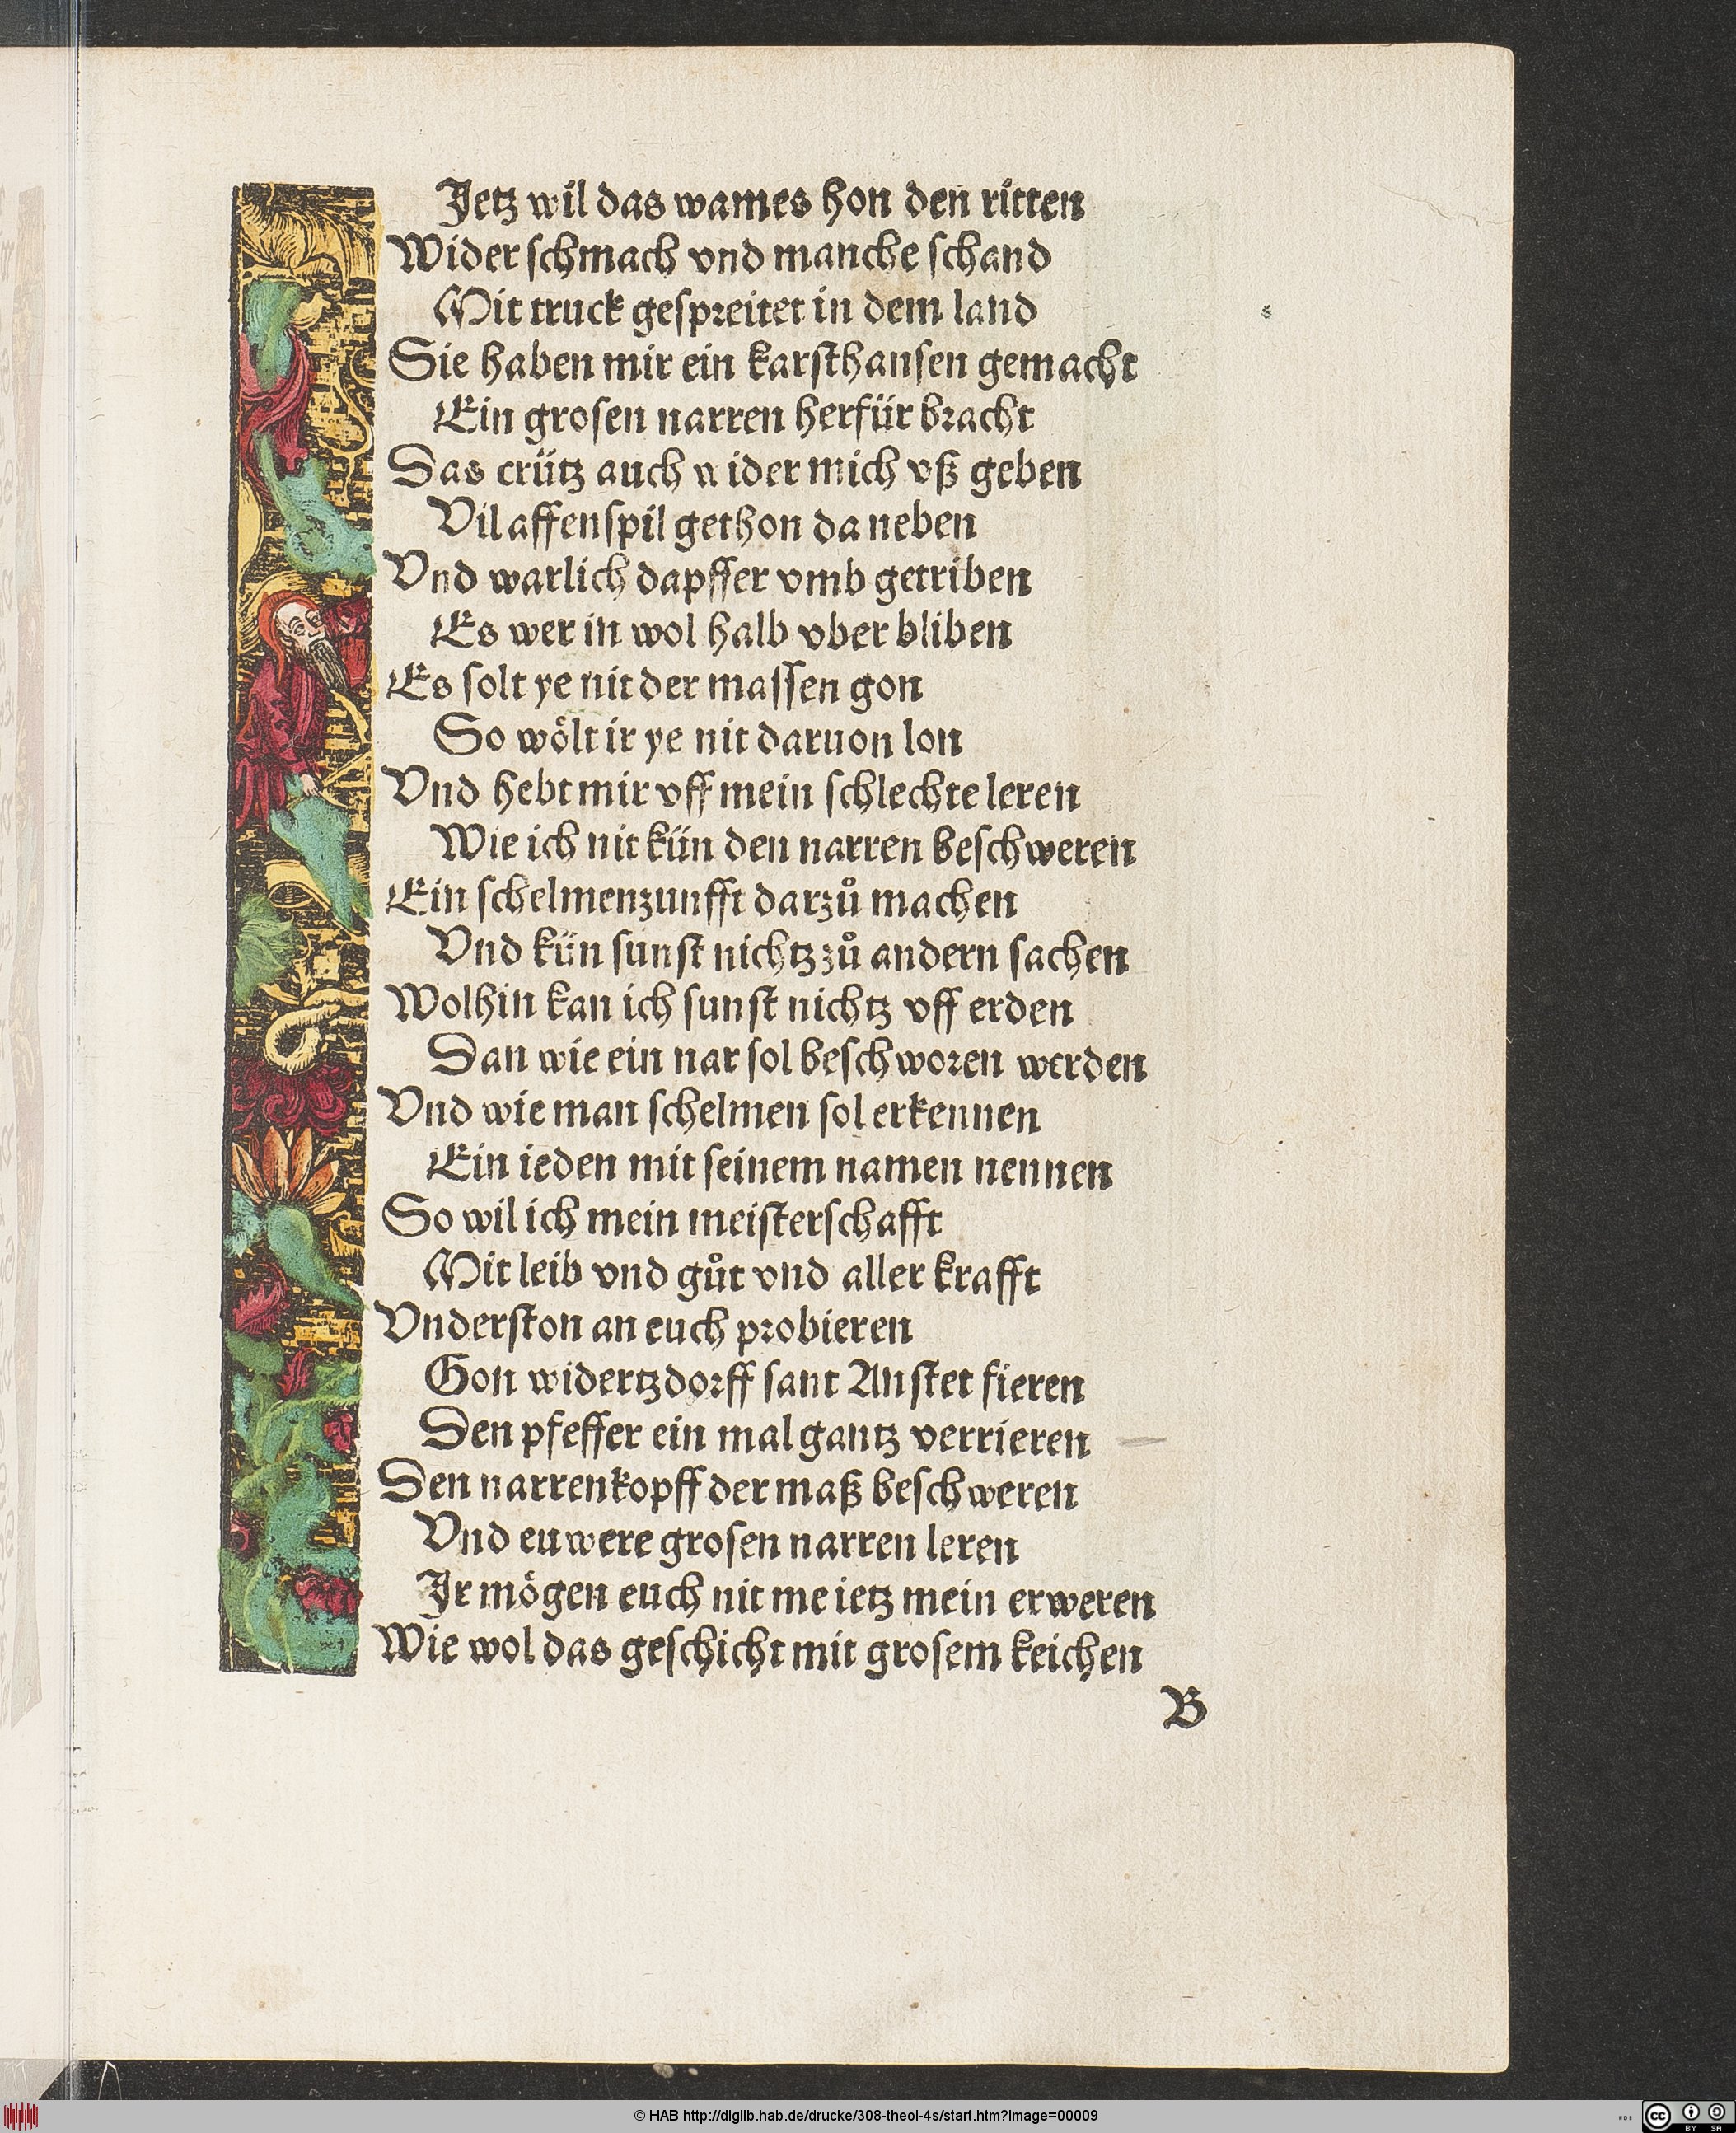 Jetz wil das wames hon den ritten
Wider schmach vnd manche schand
Mit truck gespreitet in dem land
Sie haben mir ein karsthansen gemacht
Ein grosen narren herfür bracht
Das crütz auch wider mich vß geben
Vil affenspil gethon da neben
Vnd warlich dapffer vmb getriben
Es wer in wol halb vber bliben
Es solt ye nit der massen gon
So wöͤlt ir ye nit daruon lon
Vnd hebt mir vff mein schlechte leren
Wie ich nit kün den narren beschweren
Ein schelmenzunfft darzů machen
Vnd kün sunst nichtz zů andern sachen
Wolhin kan ich sunst nichtz vff erden
Dan wie ein nar sol beschworen werden
Vnd wie man schelmen sol erkennen
Ein ieden mit seinem namen nennen
So wil ich mein meisterschafft
Mit leib vnd gůt vnd aller krafft
Vnderston an euch probieren
Gon widertzdorff sant Anstet fieren
Den pfeffer ein mal gantz verrieren
Den narrenkopff der maß beschweren
Vnd euwere grosen narren leren
Ir mögen euch nit me ietz mein erweren
Wie wol das geschicht mit grosem keichen
B
© HAB http://diglib.hab.de/drucke/308-theol-4s/start.htm?image=00009
cc BY SA